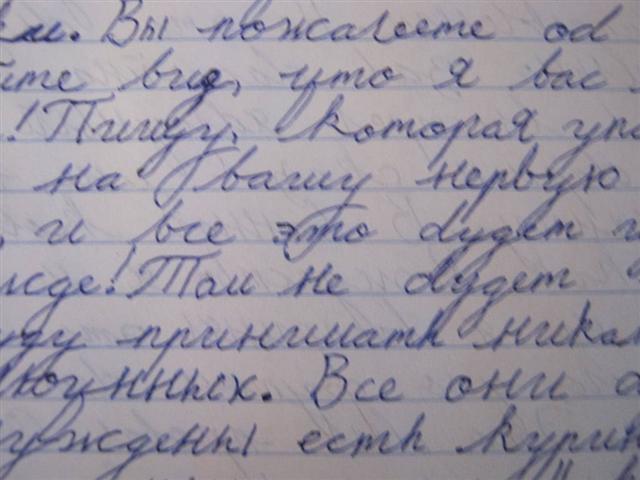 Вы пожалеете об
йте вид, что я вас
! Пищу, которая упа
на Вашу нервую
, и все это будет
жде! Там не будет
уду принимать никак
Все они
уждены есть курин